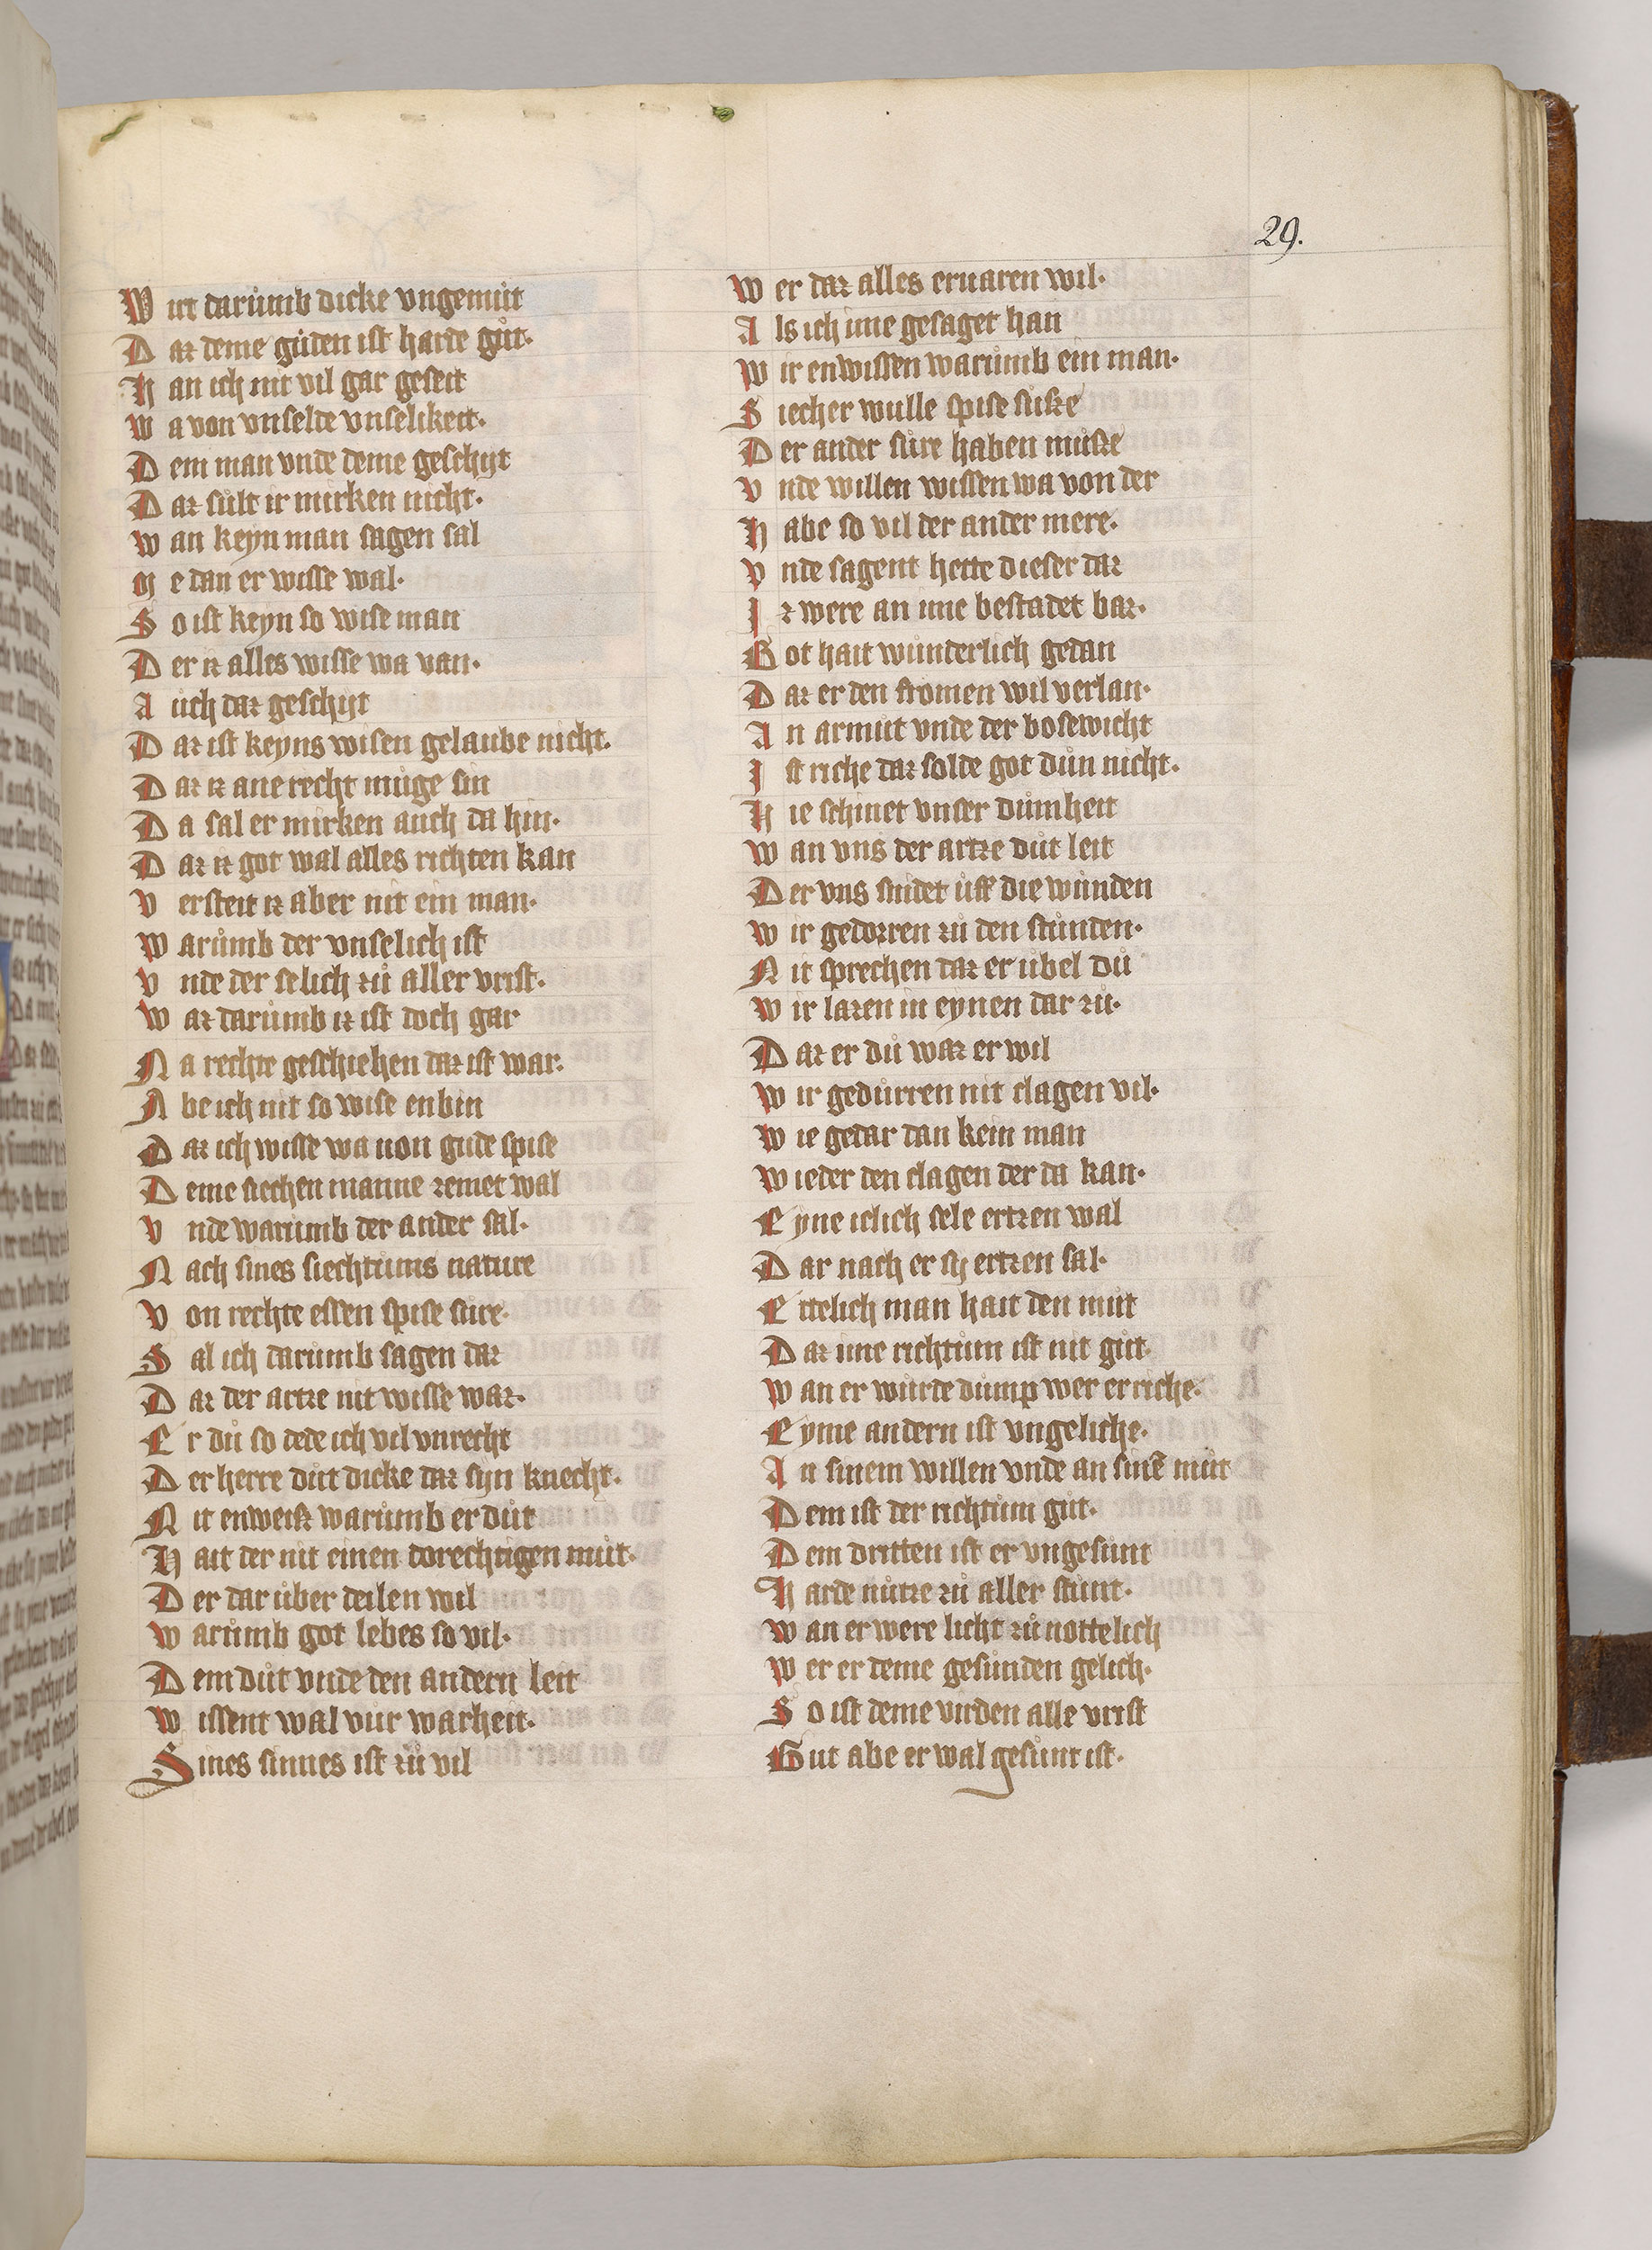 29.
Wirt darůmb dicke vngemůt
Daz deme gůden ist harde gůt.
Han ich nit vil gar geseit
Wa von vnselde vnselikeit.
Dem man vnde deme geschyt
Daz sůlt ir mirken nicht.
Wan keyn man sagen sal
Me dan er wisse wal.
So ist keyn so wise man
Der iz alles wisse wa van.
Aůch daz geschyt
Daz ist keyns wisen gelaube nicht.
Daz iz ane recht můge sin
Da sal er mirken auch da hin.
Daz iz got wal alles richten kan
Versteit iz aber nit ein man.
Warůmb der vnselich ist
Vnde der selich zů aller vrist.
Waz darůmb iz ist doch gar
Na rechte geschiehen daz ist war.
Abe ich nit so wise enbin
Daz ich wisse wa uon gude spise
Deme siechen manne zemet wal
Vnde warůmb der ander sal.
Nach sines siechtůms nature
Von rechte essen spise sůre.
Sal ich darůmb sagen daz
Daz der artze nit wisse waz.
Er dů so dede ich vil vnrecht
Der herre důt dicke daz syn knecht.
Nit enweiß warůmb er důt
Hait der nit einen dorechtigen můt.
Der dar ůber deilen wil
Warůmb got lebes so vil.
Dem důt vnde den andern leit
Wissent wal vůr warheit.
Sines sinnes ist zů vil
Wer daz alles eruaren wil.
Als ich ime gesaget han
Wir enwissen warůmb ein man.
Siecher wulle spise sůße
Der ander sůre haben můße
Vnde willen wissen wa von der
Habe so vil der ander mere.
Vnde sagent hette dieser daz
Iz were an ime bestadet baz.
Got hait wůnderlich gedan
Daz er den fromen wil verlan.
An armůt vnde der bosewicht
Ist riche daz solde got důn nicht.
Hie schinet vnser důmheit
Wan vns der artze důt leit
Der vns snidet ůff die wůnden
Wir gedorren zů den stůnden.
Nit sprechen daz er ůbel dů
Wir lazen in eynen dar zů.
Daz er dů waz er wil
Wir gedůrren nit clagen vil.
Wie getar dan kein man
Wieder den clagen der da kan.
Eyne iclich sele ertzen wal
Dar nach er sy ertzen sal.
Ettelich man hait den můt
Daz ime richtům ist nit gůt.
Wan er wůrde důmp wer er riche.
Eyme andern ist vngeliche.
An sinem willen vnde an sinē můt
Dem ist der richtům gůt.
Dem dritten ist er vngesůnt
Harde nůtze zů aller stůnt.
Wan er were licht zů nottelich
Wer er deme gesůnden gelich.
So ist deme virden alle vrist
Gut abe er wal gesůnt ist.